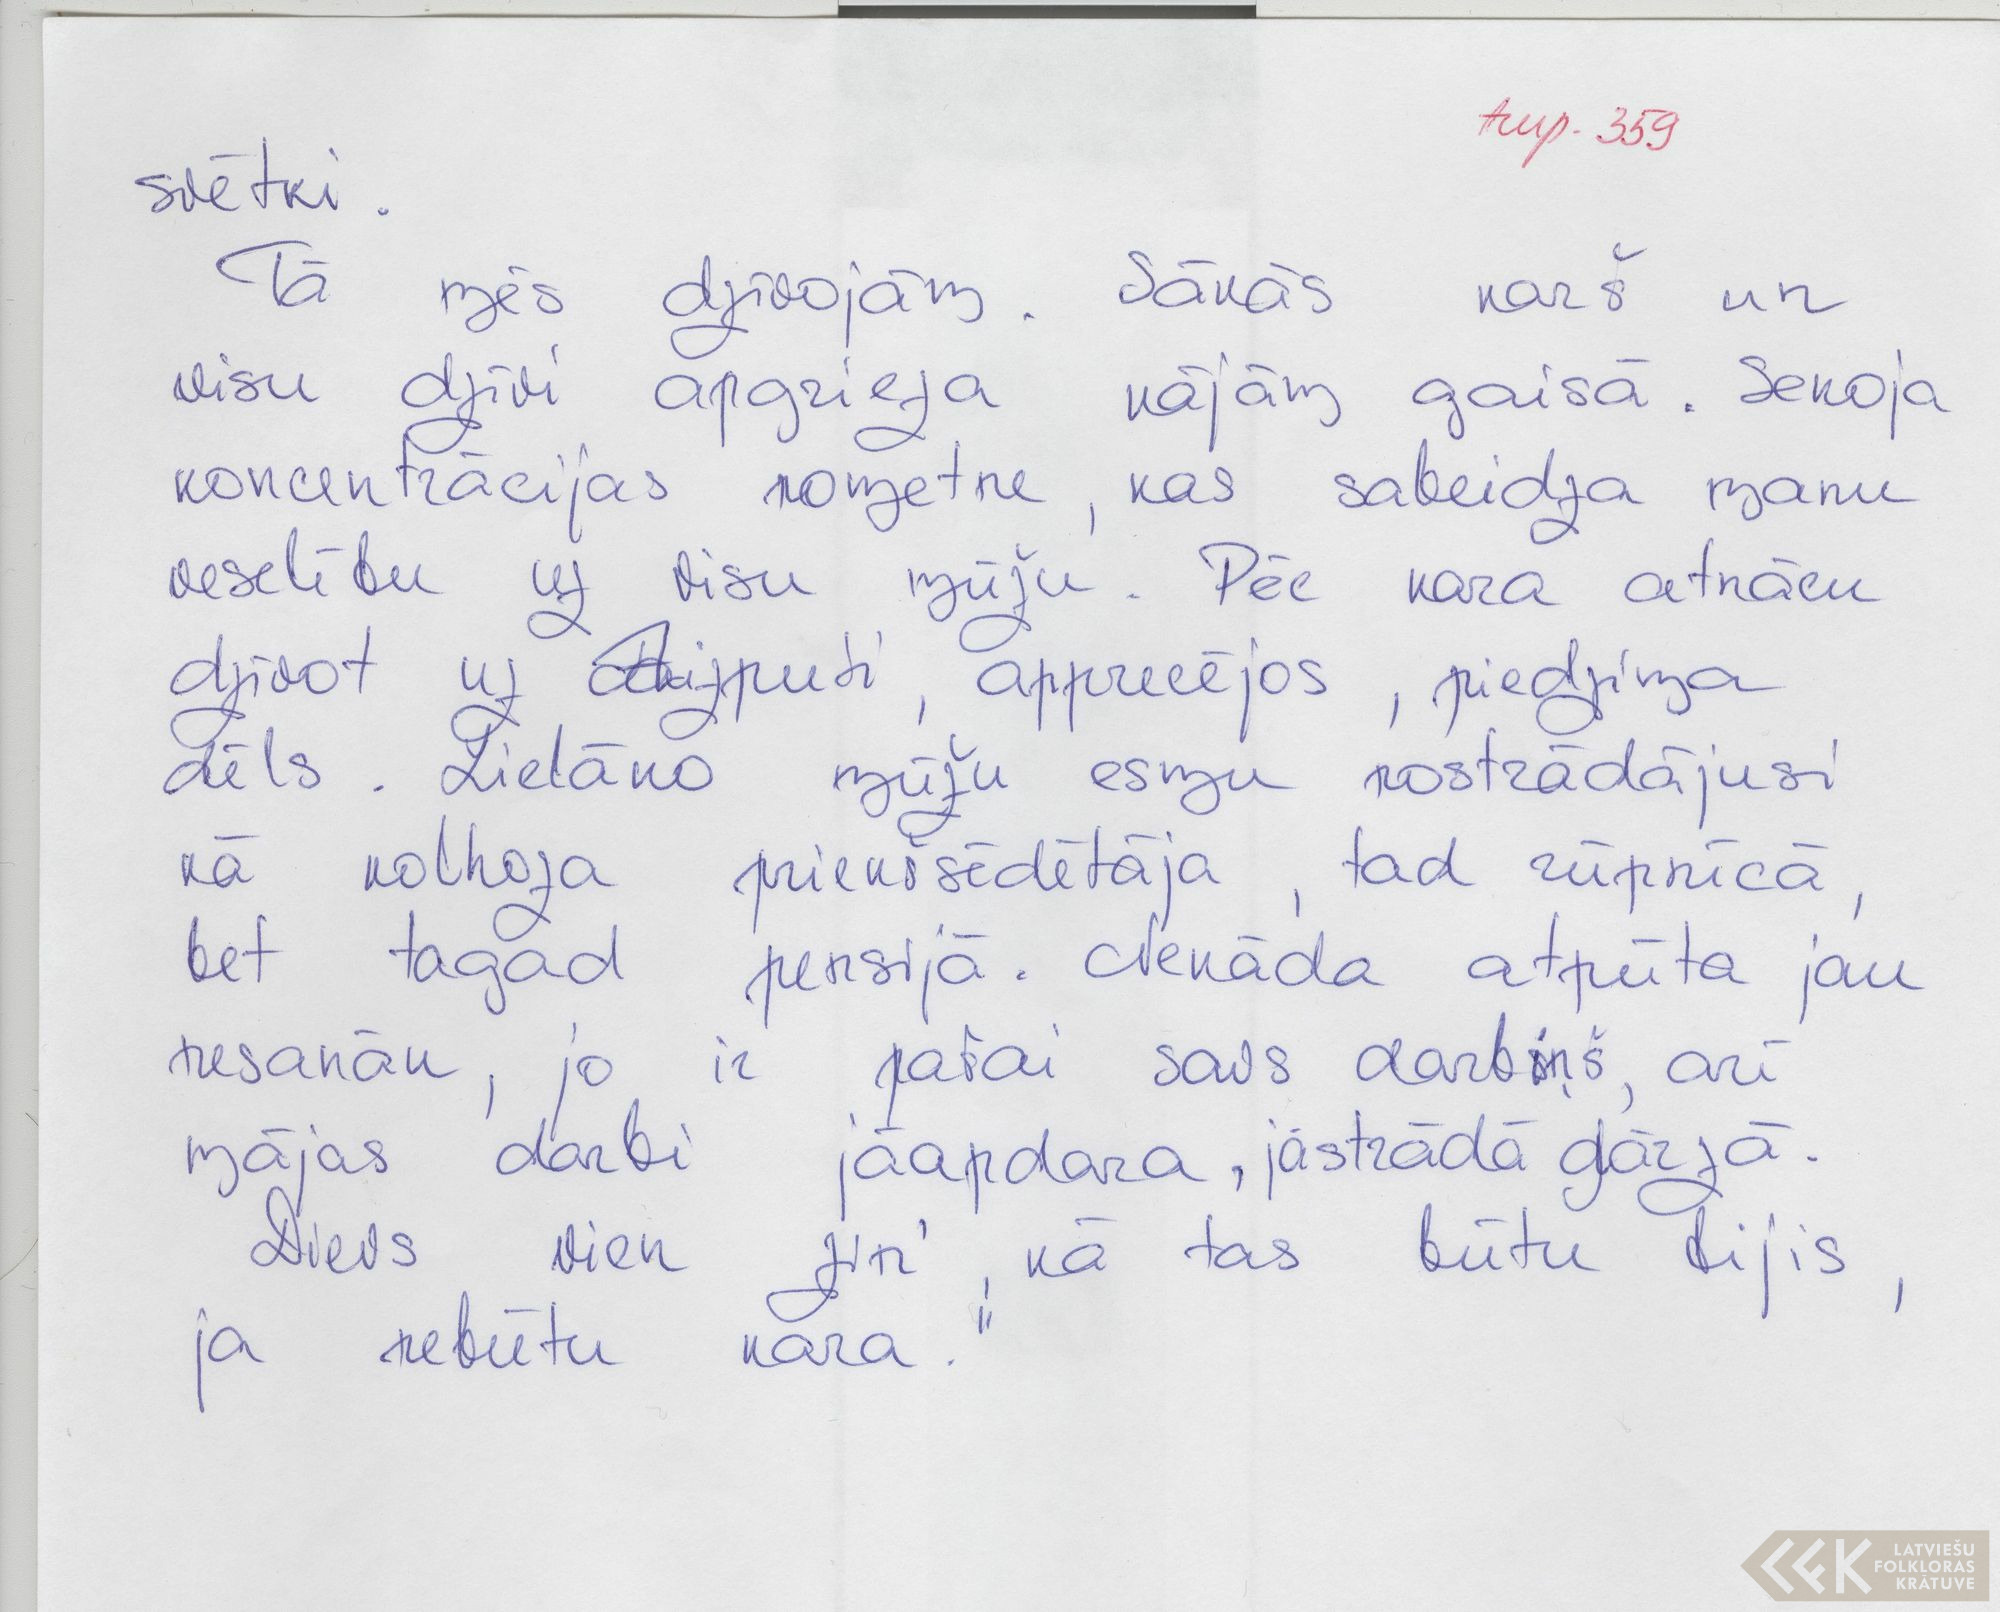 turp. 359
svētki.
Tā mēs dzīvojām. Sākās karš un
visu dzīvi apgrieza kājām gaisā. Sekoja
koncentrācijas nometne, kas sabeidza manu
veselību uz visu mūžu. Pēc kara atnācu
dzīvot uz Aizputi, apprecējos, piedzima
dēls. Lielāko mūžu esmu nostrādājusi
kā kolhoza priekšsēdētāja, tad rūpnīcā,
bet tagad pensijā. Nekāda atpūta jau
nesanāk, jo ir pašai savs darbiņš, arī
mājas darbi jāapdara, jāstrādā dārzā.
Dievs vien zin', kā tas būtu bijis,
ja nebūtu kara."
LATVIEŠU
FOLKLORAS
KRĀTUVE